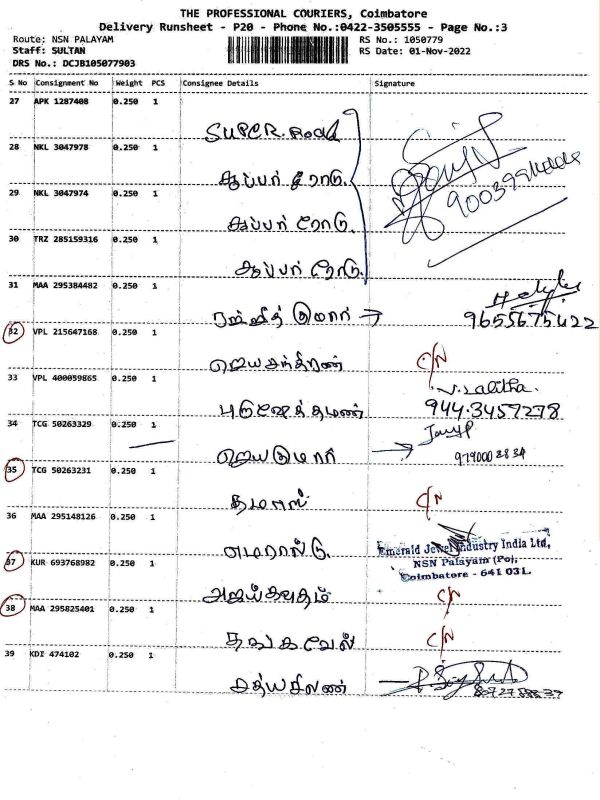 THE PROFESSIONAL COURIERS, Coimbatore
Delivery Runsheet - P20 - Phone No.:0422-3505555 - Page No.:3
Route: NSN PALAYAM RS No.: 1050779
Staff: SULTAN RS Date: 01-Nov-2022
DRS No.: DCJB105077903
S No Consignment No Weight PCS Consignee Details Signature
27 APK 1287408 0.250 1
SUPER Road
28 NKL 3047978 0.250 1
சூப்பர் ரோடு
9003991444
29 NKL 3047974 0.250 1
சூப்பர் ரோடு
30 TRZ 285159316 0.250 1
சூப்பர் ரோடு
31 MAA 295384482 0.250 1
ரஞ்ஜித் குமார்
9655675422
32 VPL 215647168 0.250 1
ஜெயசந்திரன் C/N
33 VPL 400059865 0.250 1
V. Lalitha.
புருஷோத்தமன் 944.3457278
34 TCG 50263329 0.250 1
ஜெயகுமார்
35 TCG 50263231 0.250 1
தமாஸ் C/N
36 MAA 295148126 0.250 1
எமரால்டு Emerald Jewel Industry India Ltd,
NSN Palayam (Po),
Coimbatore - 641 031.
37 KUR 693768982 0.250 1
அஜய்கவுதம் C/N
38 MAA 295825401 0.250 1
தங்கவேல் C/N
39 KDI 474102 0.250 1
சத்யசீலன்